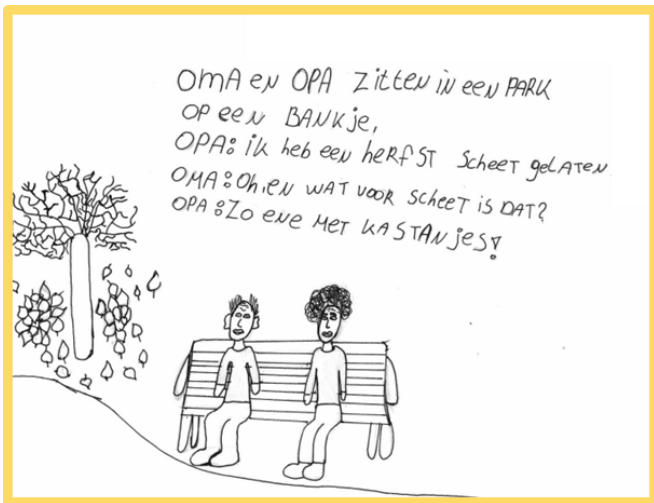 OMA EN OPA ZITTEN IN EEN PARK
OP EEN BANKJE,
OPA: IK HEB EEN HERFST SCHEET GELATEN
OMA: OH, EN WAT VOOR SCHEET IS DAT?
OPA: ZO ENE MET KASTANJES!